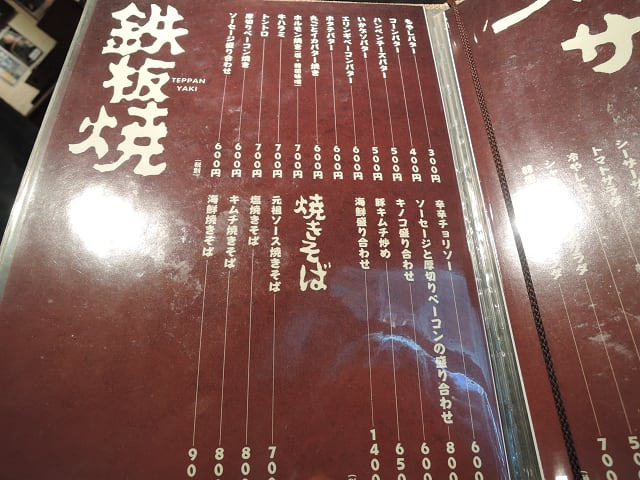 鉄板焼
TEPPAN
YAKI
もやしバター 300円
コーンバター 400円
ハンペンチーズバター 500円
いかゲソバター 500円
エリンギベーコンバター 600円
ホタテバター 600円
丸ごとイカバター焼き 600円
ホルモン焼き(塩・韓国味噌) 700円
牛ハラミ 700円
トントロ 700円
厚切りベーコン焼き 600円
ソーセージ盛り合わせ 600円
(税別)
辛辛チョリソー 600
ソーセージと厚切りベーコンの盛り合わせ 800
キノコ盛り合わせ 600
豚キムチ炒め 650
海鮮盛り合わせ 1400
焼きそば
元祖ソース焼きそば 700
塩焼きそば 800
キムチ焼きそば 800
海鮮焼きそば 90
サ
シーザー
トマト
冷や
ラダ
700